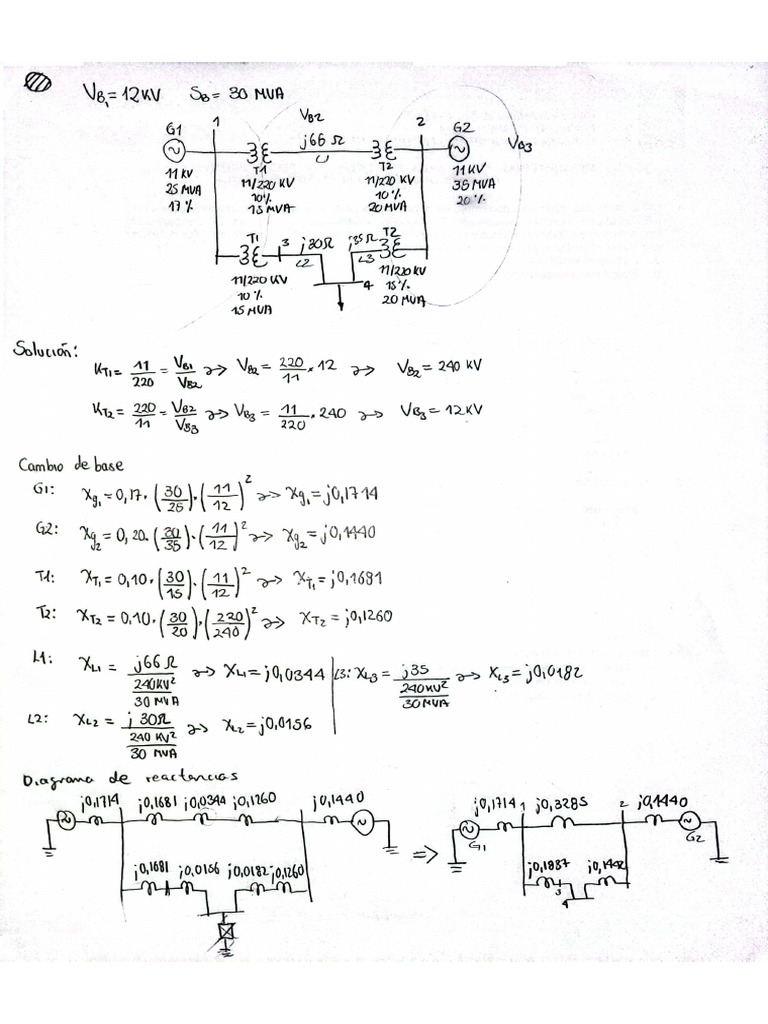 VB1= 12KV SB= 30 MVA
1 VB2 2
G1 j66 Ω G2 VB3
T1 T2
11 KV 11/220 KV 11/220 KV 11 KV
25 MVA 10% 10% 35 MVA
17 % 15 MVA 20 MVA 20 %
T1 3 j30Ω j35Ω T2
L2 L3
11/220 KV 4 11/220 KV
10 % 15%
15 MVA 20 MVA
Solución:
KT1= 11/220 = VB1/VB2 → VB2= 220/11 . 12 → VB2= 240 KV
KT2= 220/11 = VB2/VB3 → VB3 = 11/220 . 240 → VB3= 12KV
Cambio de base
G1: Xg1= 0,17 . (30/25) . (11/12)^2 → Xg1= j0,1714
G2: Xg2= 0,20. (30/35) . (11/12)^2 → Xg2= j0,1440
T1: XT1= 0,10 . (30/15) . (11/12)^2 → XT1= j0,1681
T2: XT2= 0,10 . (30/20) . (220/240)^2 → XT2= j0,1260
L1: XL1 = j66 Ω / (240KV^2 / 30 MVA) → XL1= j0,0344
L3: XL3= j35 / (240KV^2 / 30MVA) → XL3= j0,0182
L2: XL2= j 30Ω / (240 KV^2 / 30 MVA) → XL2= j0,0156
Diagrama de reactancias
j0,1714 j0,1681 j0,0344 j0,1260 j0,1440
j0,1681 j0,0156 j0,0182 j0,1260
=>
j0,1714 1 j0,3285 2 j0,1440
G1 G2
j0,1837 j0,1442
3
4